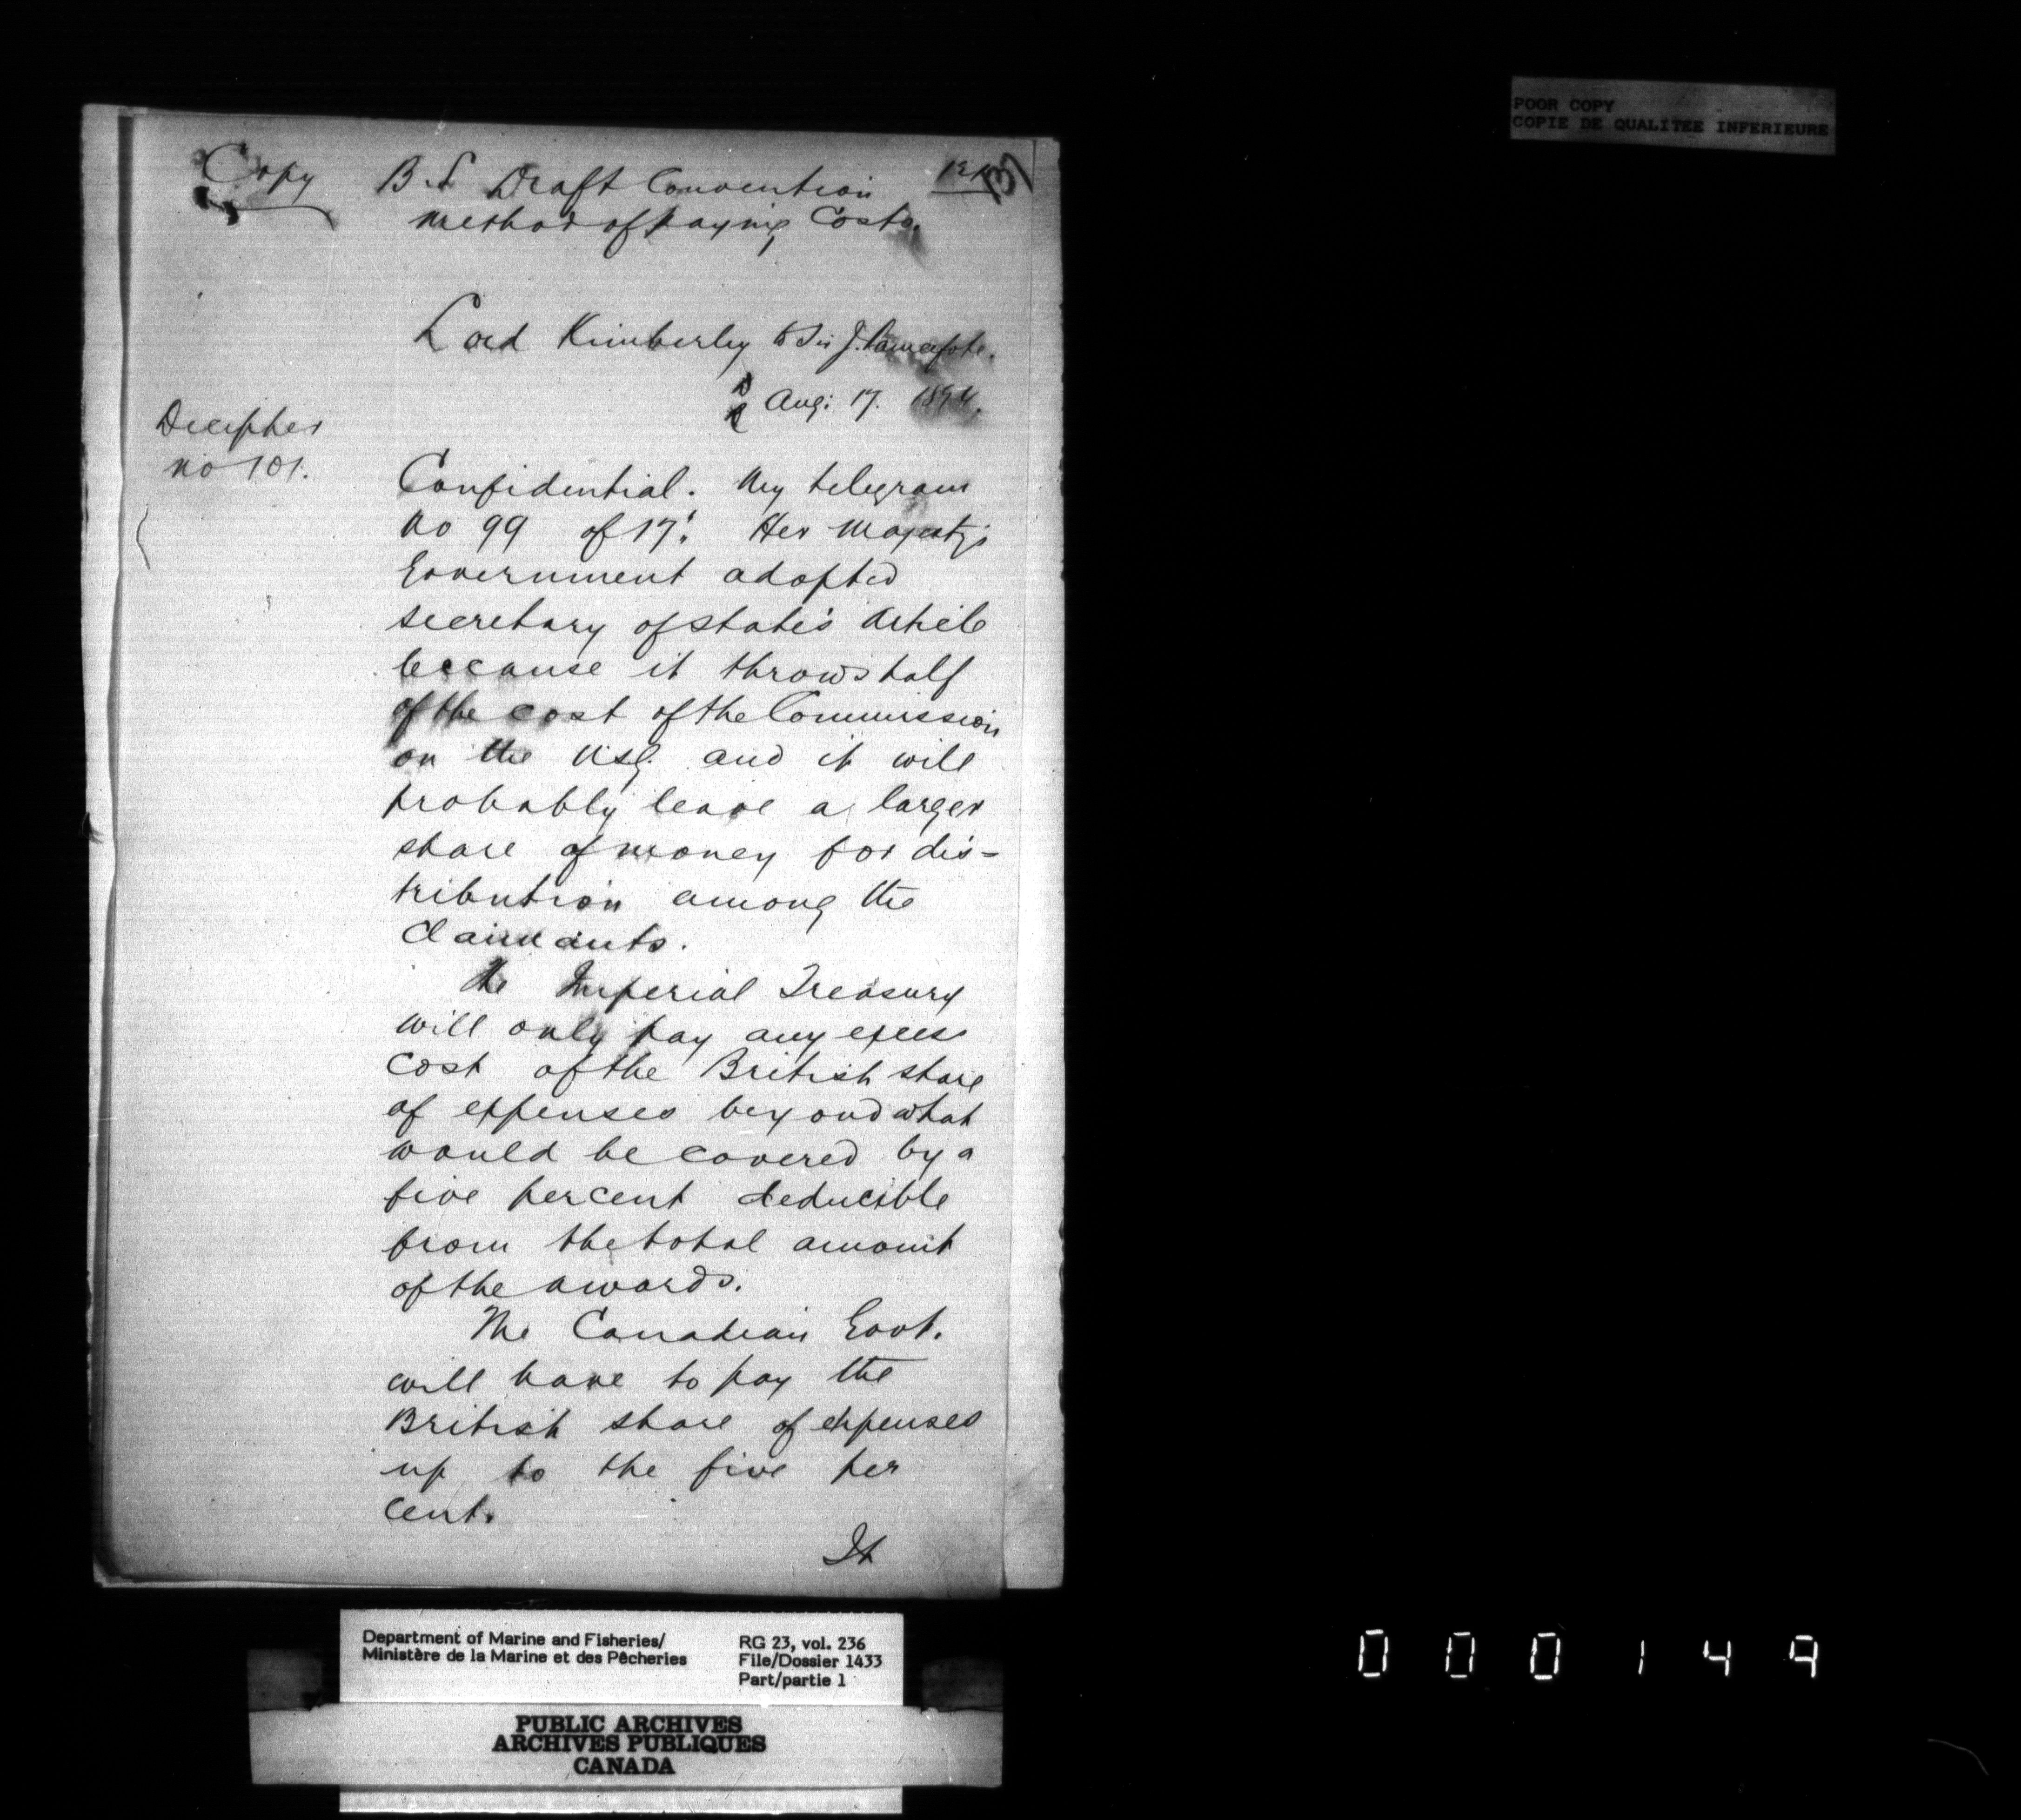 POOR COPY
COPIE DE QUALITEE INFERIEURE
Copy
B.S Draft Convention
method of paying Costs.
Lord Kimberley to Sir J. Pauncefote.
Aug: 17. 1894.
Decipher
no 101.
Confidential. My telegram
no 99 of 17: Her Majesty's
Government adopted
secretary of state's Article
because it throws half
of the cost of the Commission
on the USG. and it will
probably leave a larger
share of money for dis=
tribution among the
Claimants.
The Imperial Treasury
will only pay any excess
cost of the British share
of expenses beyond what
would be covered by a
five percent deducible
from the total amount
of the awards.
The Canadian Govt.
will have to pay the
British share of expenses
up to the five per
cent.
It
Department of Marine and Fisheries/
Ministère de la Marine et des Pêcheries
RG 23, vol. 236
File/Dossier 1433
Part/partie 1
PUBLIC ARCHIVES
ARCHIVES PUBLIQUES
CANADA
000149